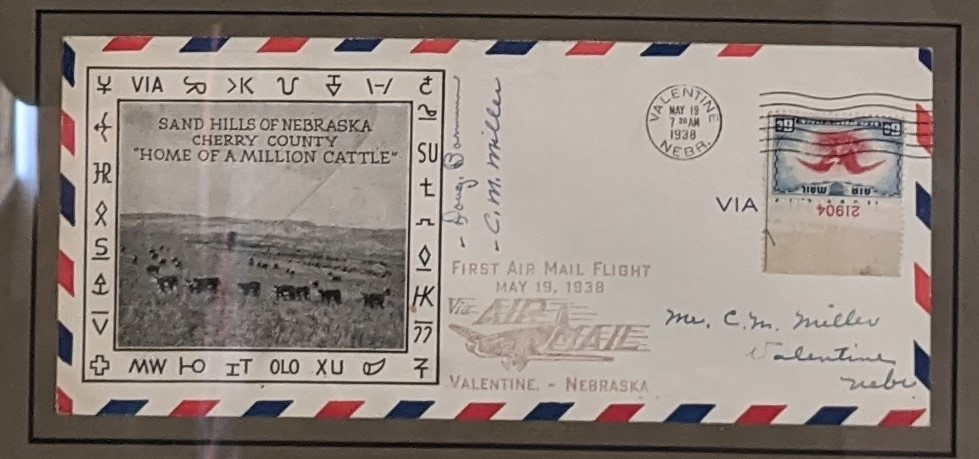 VIA
SAND HILLS OF NEBRASKA
CHERRY COUNTY
"HOME OF A MILLION CATTLE"
SU
MW
OLO
XU
- Doug
- C. M. Miller
VALENTINE
MAY 19
7 30 AM
1938
NEBR.
6¢ 6¢
AIR MAIL
21904
VIA
FIRST AIR MAIL FLIGHT
MAY 19, 1938
Via AIR
MAIL
VALENTINE, - NEBRASKA
Mr. C. M. Miller
Valentine
Nebr